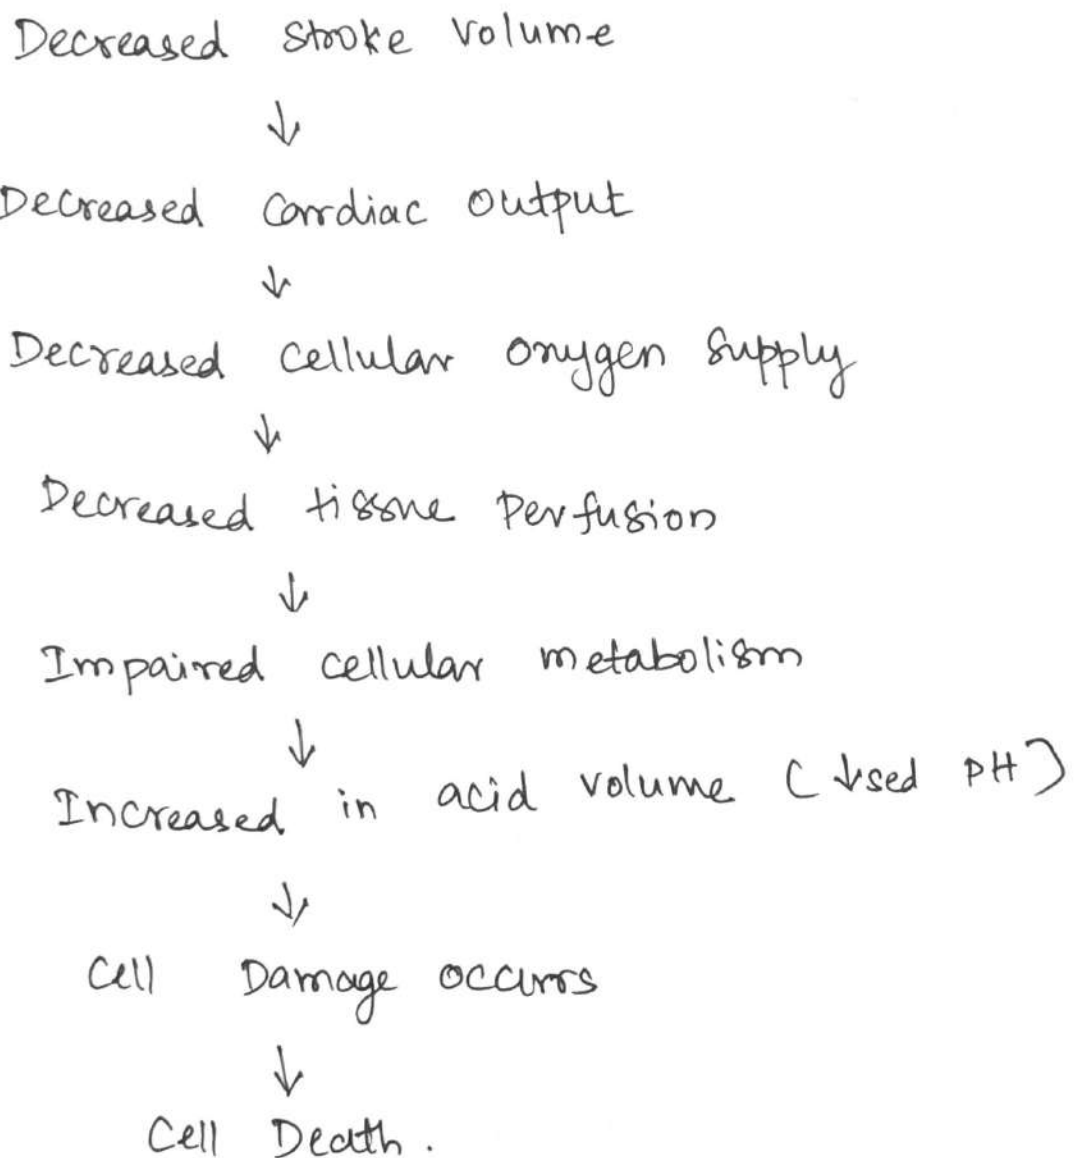 Decreased Stroke Volume
↓
Decreased Cardiac Output
↓
Decreased cellular oxygen Supply
↓
Decreased tissue Perfusion
↓
Impaired cellular metabolism
↓
Increased in acid volume (↓sed PH)
↓
Cell Damage occurs
↓
Cell Death.